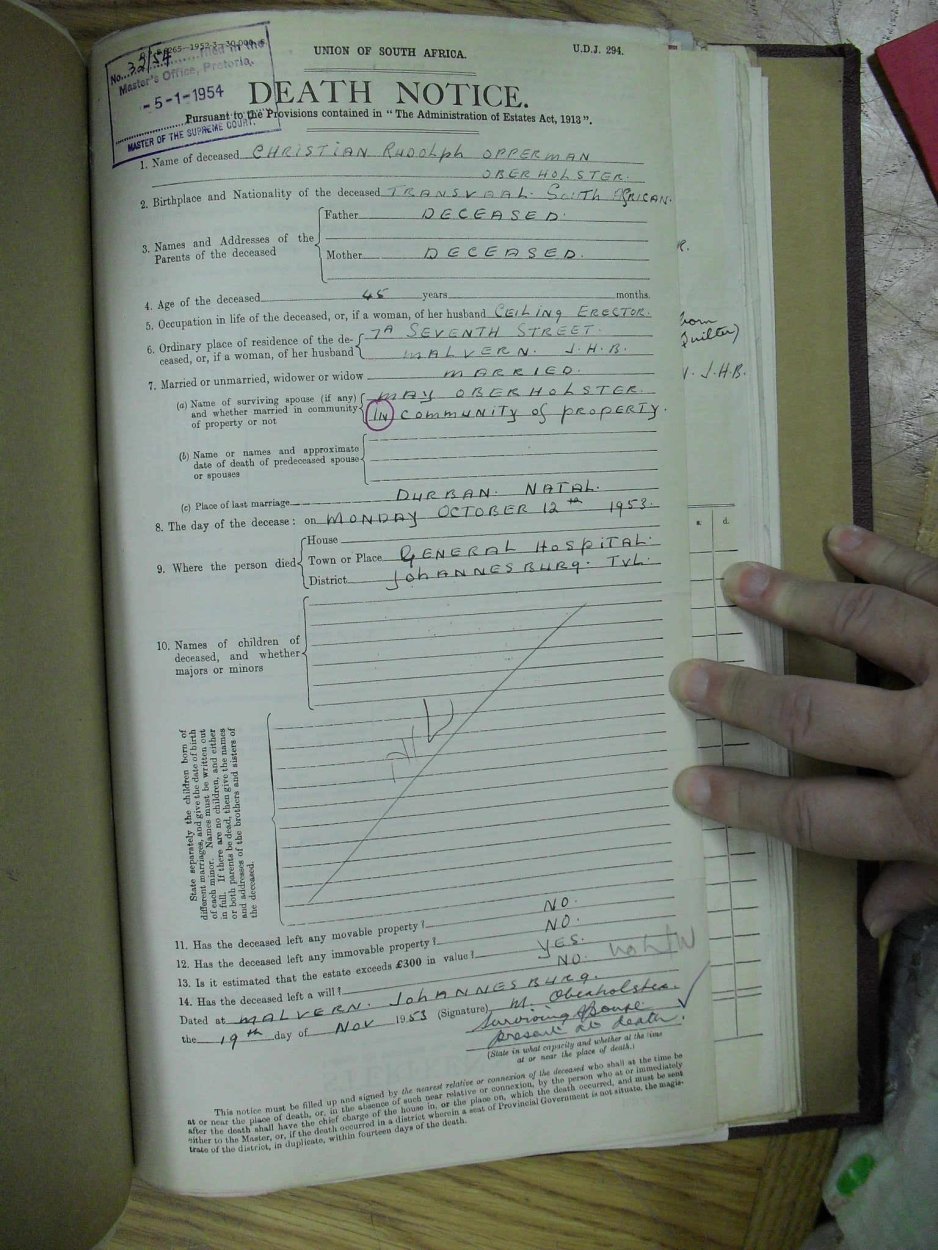 U.D.J. 294.
UNION OF SOUTH AFRICA.
No. 32/54 filed in the
Master's Office, Pretoria,
- 5 - 1 - 1954
MASTER OF THE SUPREME COURT.
DEATH NOTICE.
Pursuant to the Provisions contained in "The Administration of Estates Act, 1913".
1. Name of deceased CHRISTIAN RUDOLPH OPPERMAN
OBERHOLSTER.
2. Birthplace and Nationality of the deceased TRANSVAAL. SOUTH AFRICAN.
3. Names and Addresses of the Parents of the deceased
Father DECEASED.
Mother DECEASED.
4. Age of the deceased 45 years months.
5. Occupation in life of the deceased, or, if a woman, of her husband CEILING ERECTOR.
6. Ordinary place of residence of the de- 7A SEVENTH STREET.
ceased, or, if a woman, of her husband MALVERN. J.H.B.
7. Married or unmarried, widower or widow MARRIED.
(a) Name of surviving spouse (if any) MAY OBERHOLSTER.
and whether married in community IN COMMUNITY OF PROPERTY.
of property or not
(b) Name or names and approximate
date of death of predeceased spouse
or spouses
(c) Place of last marriage DURBAN. NATAL.
8. The day of the decease: on MONDAY OCTOBER 12th 1953.
9. Where the person died
House
Town or Place GENERAL HOSPITAL.
District JOHANNESBURG. TVL.
10. Names of children of
deceased, and whether
majors or minors
State separately the children born of
different marriages, and give the date of birth
of each minor. Names must be written out
in full. If there are no children, and either
or both parents be dead, then give the names
and addresses of the brothers and sisters of
the deceased.
11. Has the deceased left any movable property? NO.
12. Has the deceased left any immovable property? NO.
13. Is it estimated that the estate exceeds £300 in value? YES.
14. Has the deceased left a will? NO.
Dated at MALVERN. JOHANNESBURG.
the 19th day of NOV 1953 (Signature) M. Oberholster.
Surviving Spouse
present at death.
(State in what capacity and whether at the time
at or near the place of death.)
This notice must be filled up and signed by the nearest relative or connexion of the deceased who shall at the time be
at or near the place of death, or, in the absence of such near relative or connexion, by the person who at or immediately
after the death shall have the chief charge of the house in, or the place on, which the death occurred, and must be sent
either to the Master, or, if the death occurred in a district wherein a seat of Provincial Government is not situate, the magis-
trate of the district, in duplicate, within fourteen days of the death.
J.H.B.
s. d.